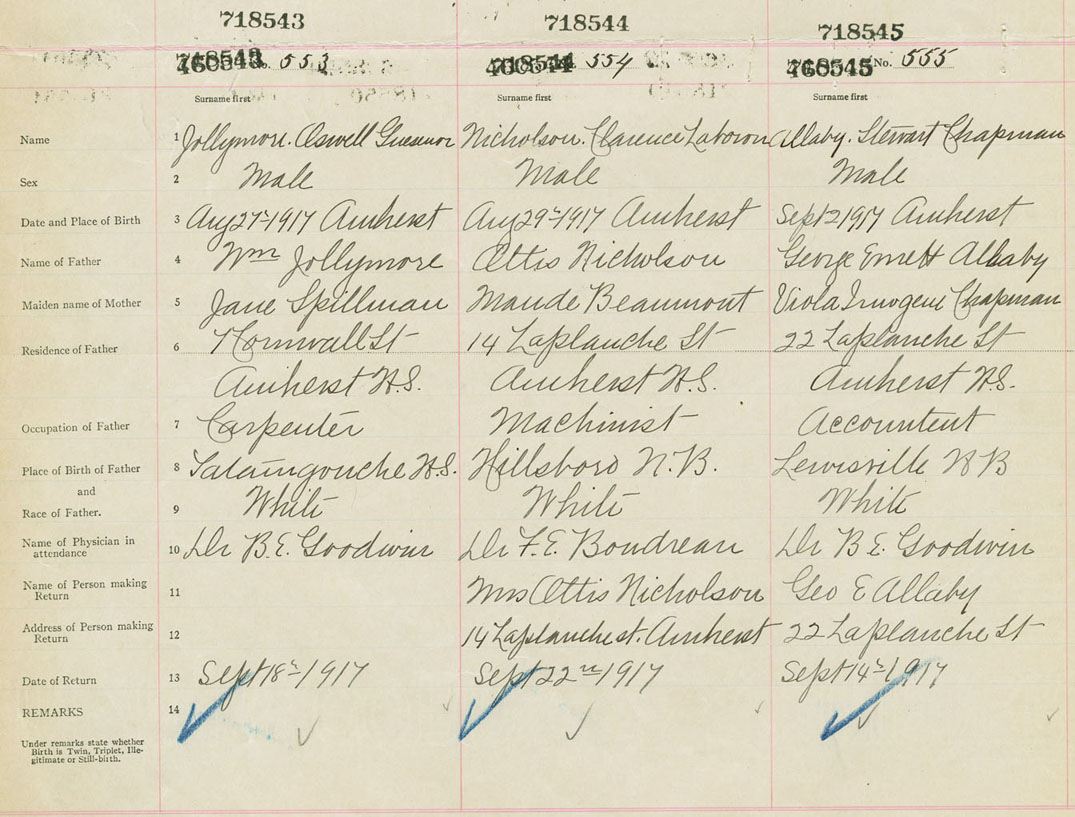 718543 718544 718545
No. 553 554 No. 555
Surname first Surname first Surname first
Name 1 Jollymore. Oswell Nicholson. Clarence Allaby. Stewart Chapman
Sex 2 Male Male Male
Date and Place of Birth 3 Aug 27th 1917 Amherst Aug 29th 1917 Amherst Sept 2 1917 Amherst
Name of Father 4 Wm Jollymore Ottis Nicholson George Emett Allaby
Maiden name of Mother 5 Jane Spillman Maude Beaumont Viola Imogene Chapman
Residence of Father 6 Cornwall St 14 Laplanche St 22 Laplanche St
Amherst N.S. Amherst N.S. Amherst N.S.
Occupation of Father 7 Carpenter Machinist Accountent
Place of Birth of Father 8 Tatamgouche N.S. Hillsboro N.B. Lewisville N B
and
Race of Father. 9 White White White
Name of Physician in attendance 10 Dr B.E. Goodwin Dr F.E. Boudreau Dr B E. Goodwin
Name of Person making Return 11 Mrs Ottis Nicholson Geo E Allaby
Address of Person making Return 12 14 Laplanche st. Amherst 22 Laplanche St
Date of Return 13 Sept 18th 1917 Sept 22nd 1917 Sept 14th 1917
REMARKS 14
Under remarks state whether
Birth is Twin, Triplet, Ille-
gitimate or Still-birth.